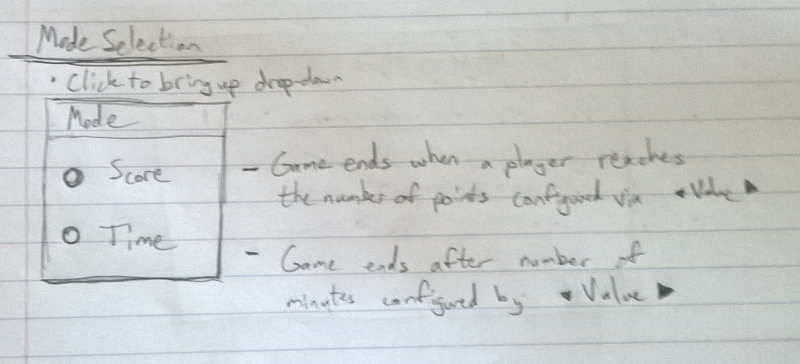 Mode Selection
• Click to bring up drop-down
Mode
Score
- Game ends when a player reaches
the number of points configured via ◂Value▸
Time
- Game ends after number of
minutes configured by ◂Value▸